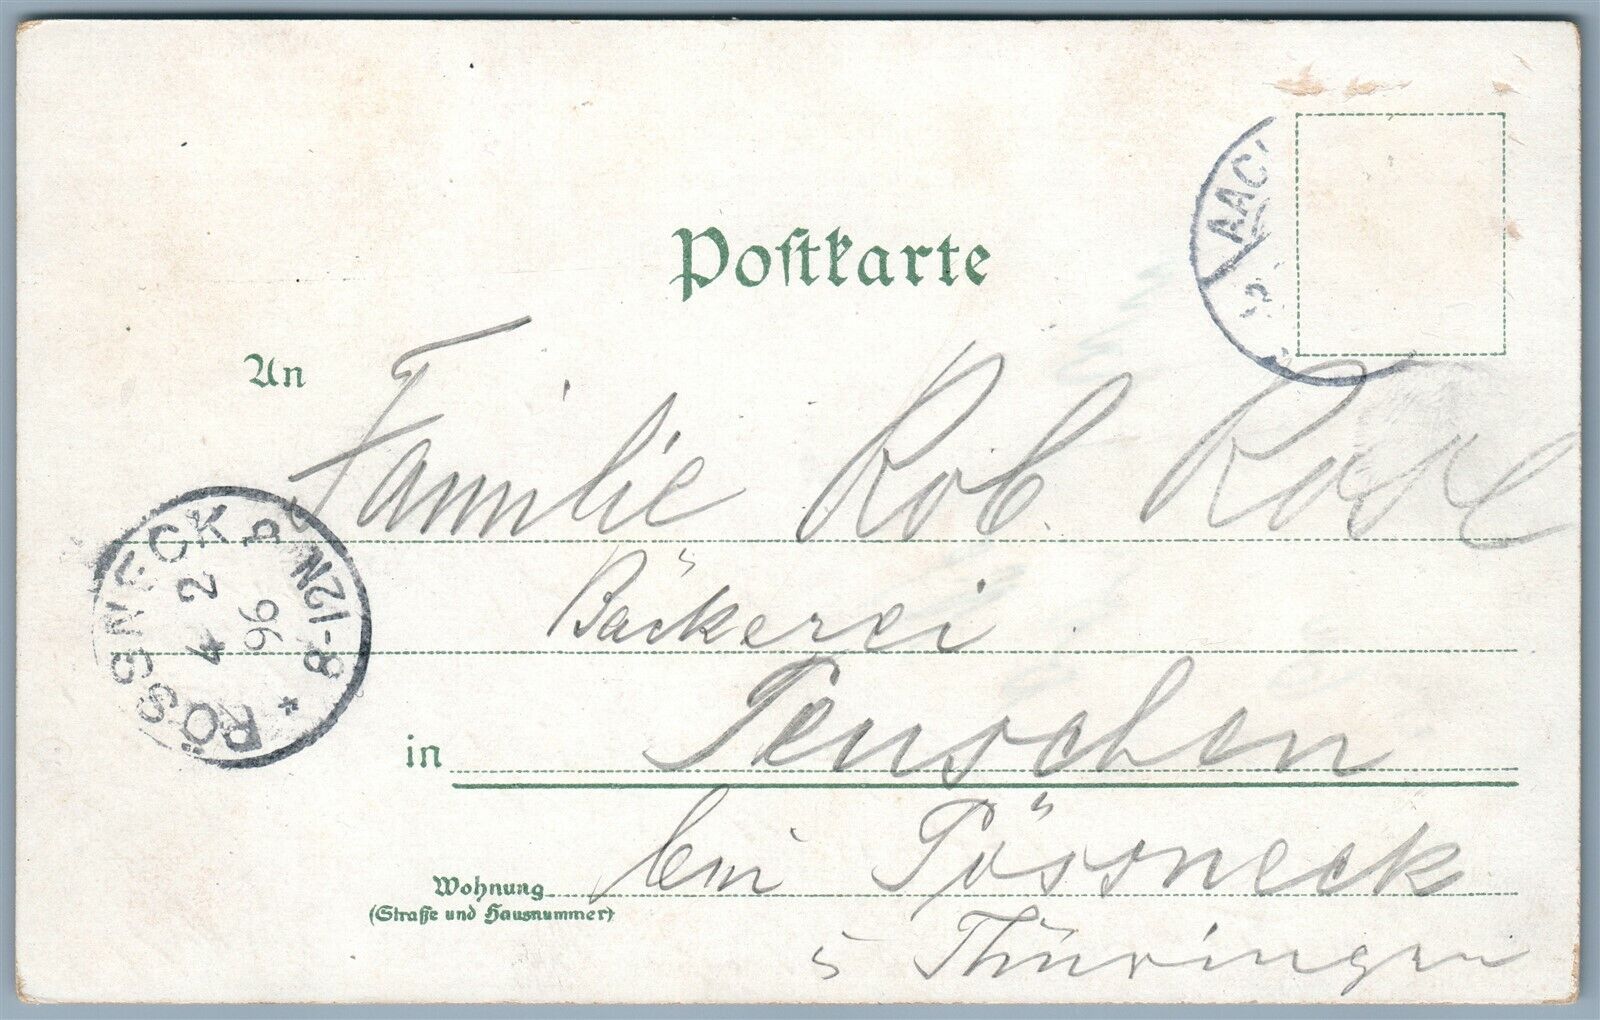 Postkarte
AAC
An
Familie Rob. Rose
Bäckerei
PÖSSNECK
4 2
96
8-12N
*
in Peuschen
bei Pössneck
Wohnung
(Straße und Hausnummer)
Thüringen